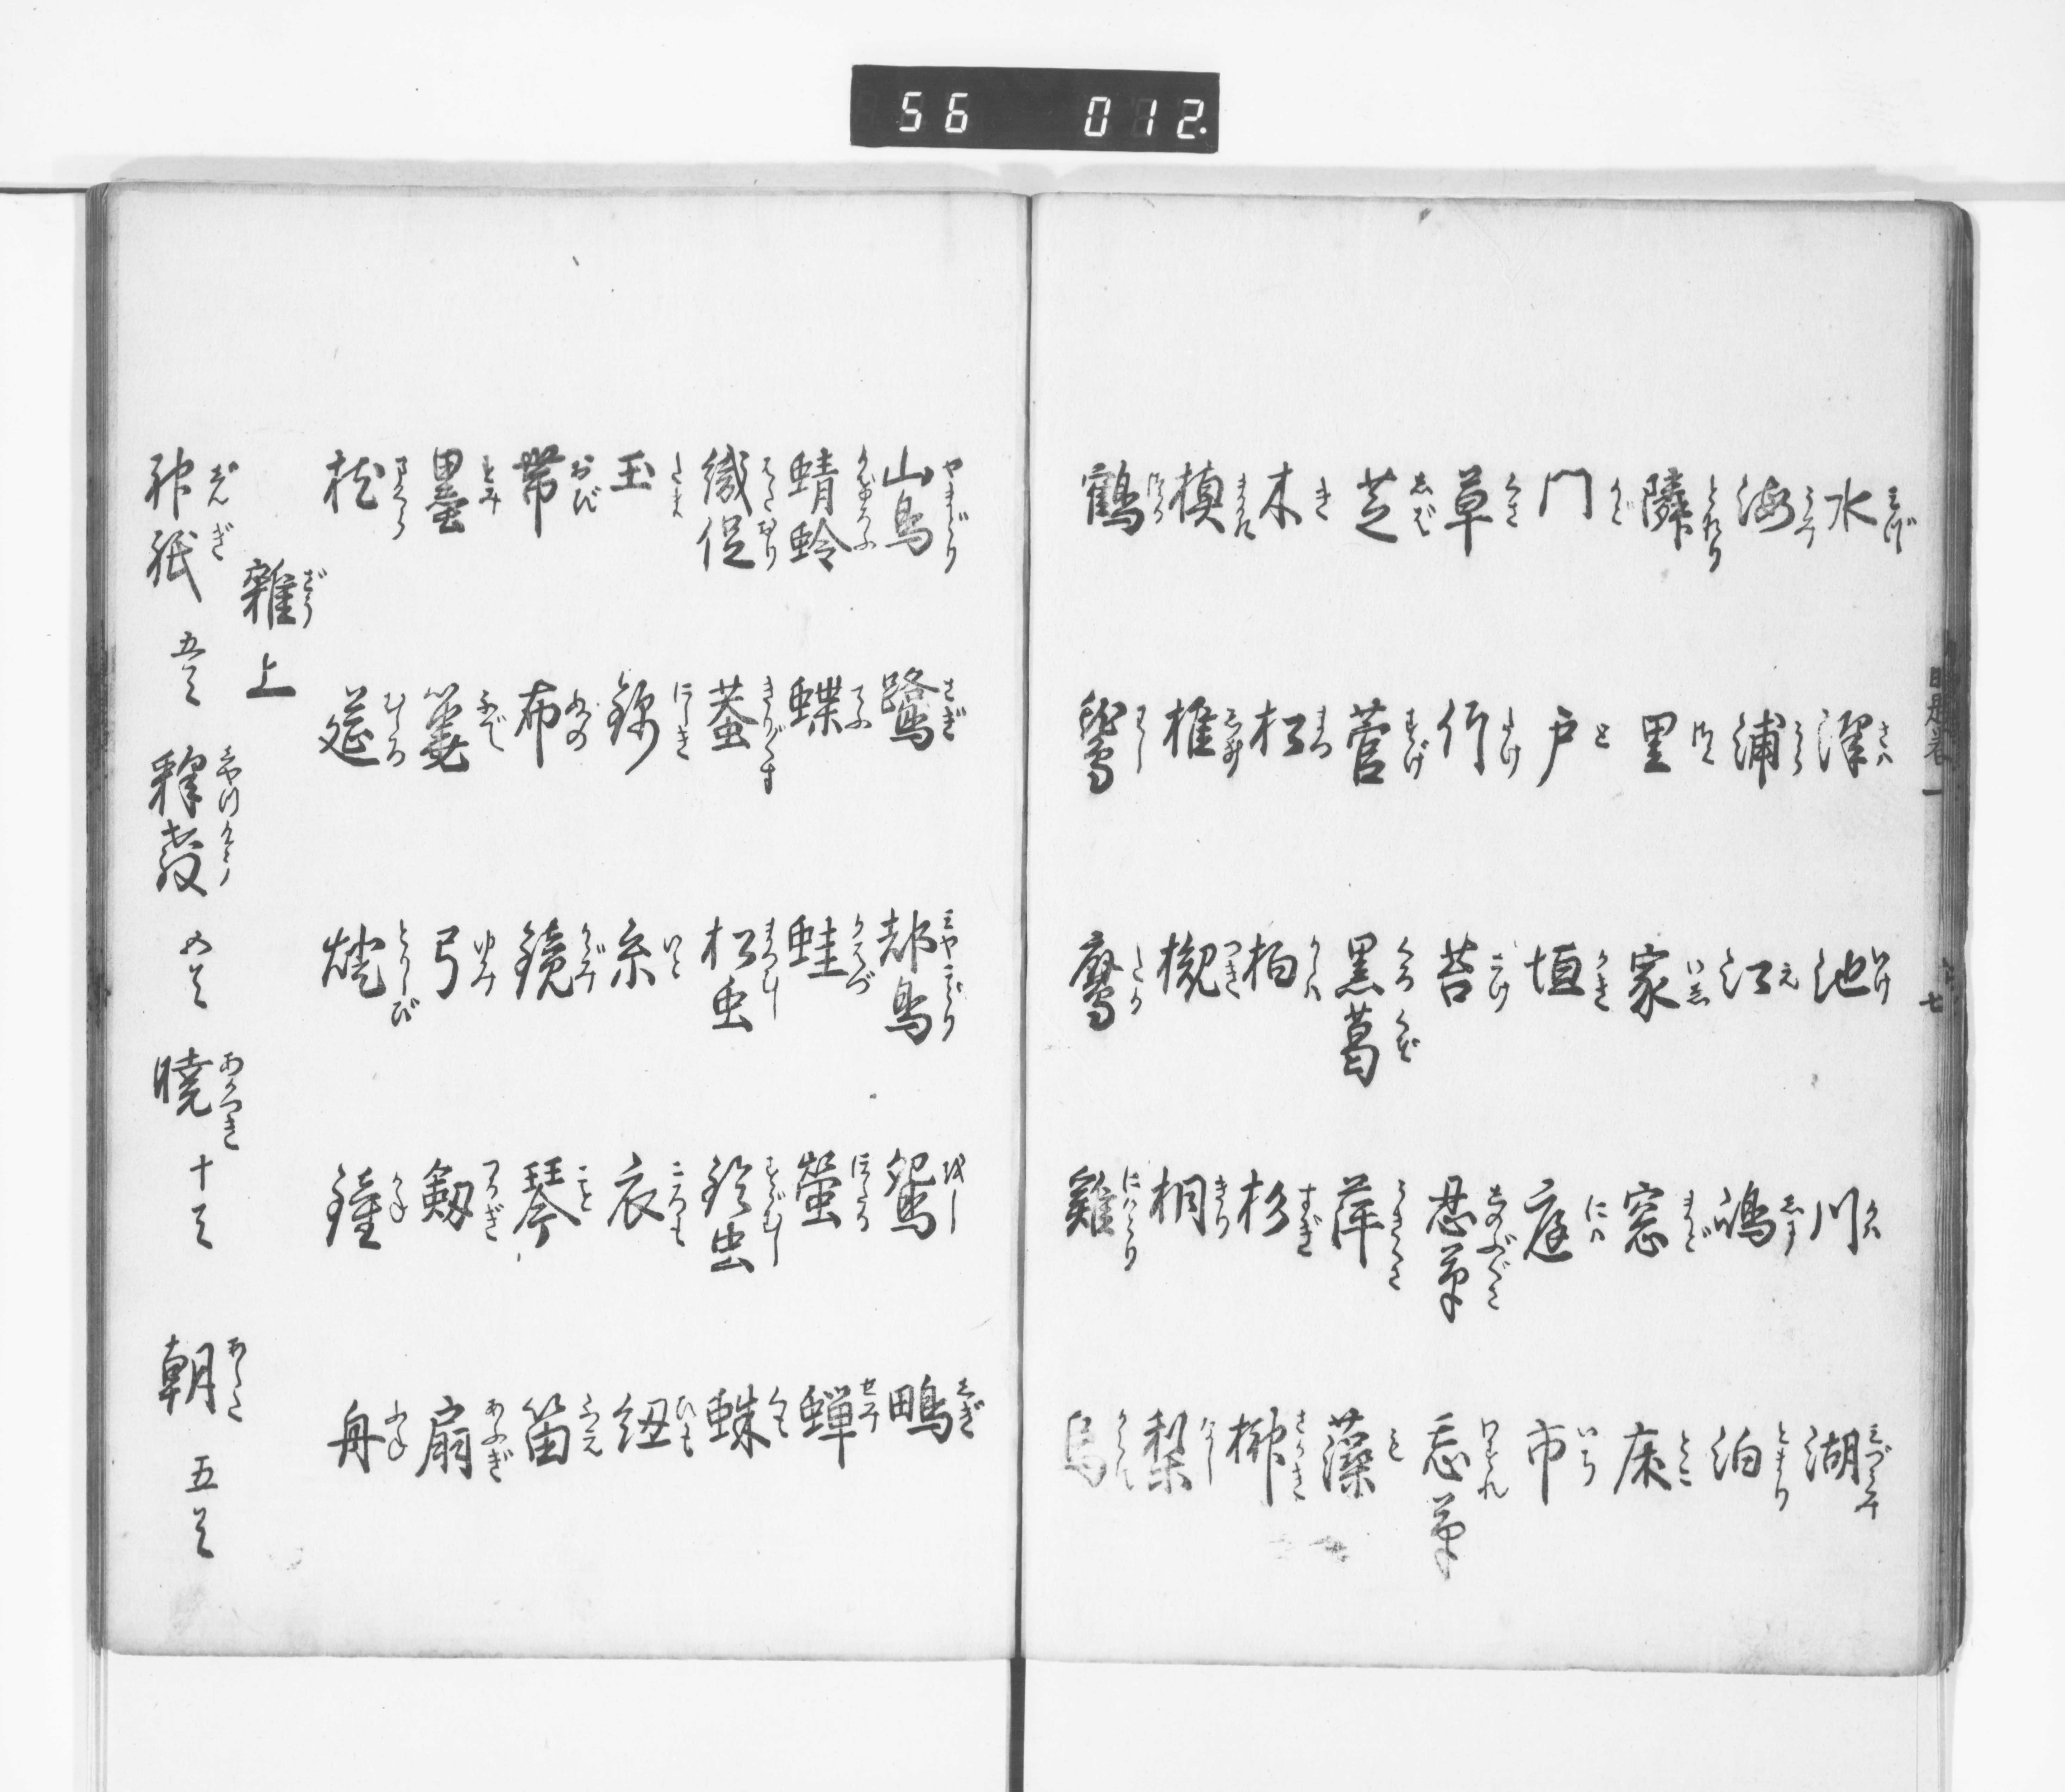 56 012.
水 澤 池 川 湖
海 浦 江 嶋 泊
隣 里 家 窓 床
門 戸 垣 庭 市
草 竹 苔 忍草 忘草
芝 菅 黒葛 萍 藻
木 松 柏 杉 榊
槙 椎 槻 桐 梨
鶴 鷲 鷹 雞 烏
山鳥 鷺 都鳥 鴛 鴫
蜻蛉 蝶 蛙 螢 蝉
織促 蛬 松虫 鈴虫 蛛
玉 錦 糸 衣 紐
帯 布 鏡 琴 笛
墨 筆 弓 剱 扇
枕 莚 燈 鐘 舟
雜上
神祇 五首 釋教 四首 曉 十首 朝 五首